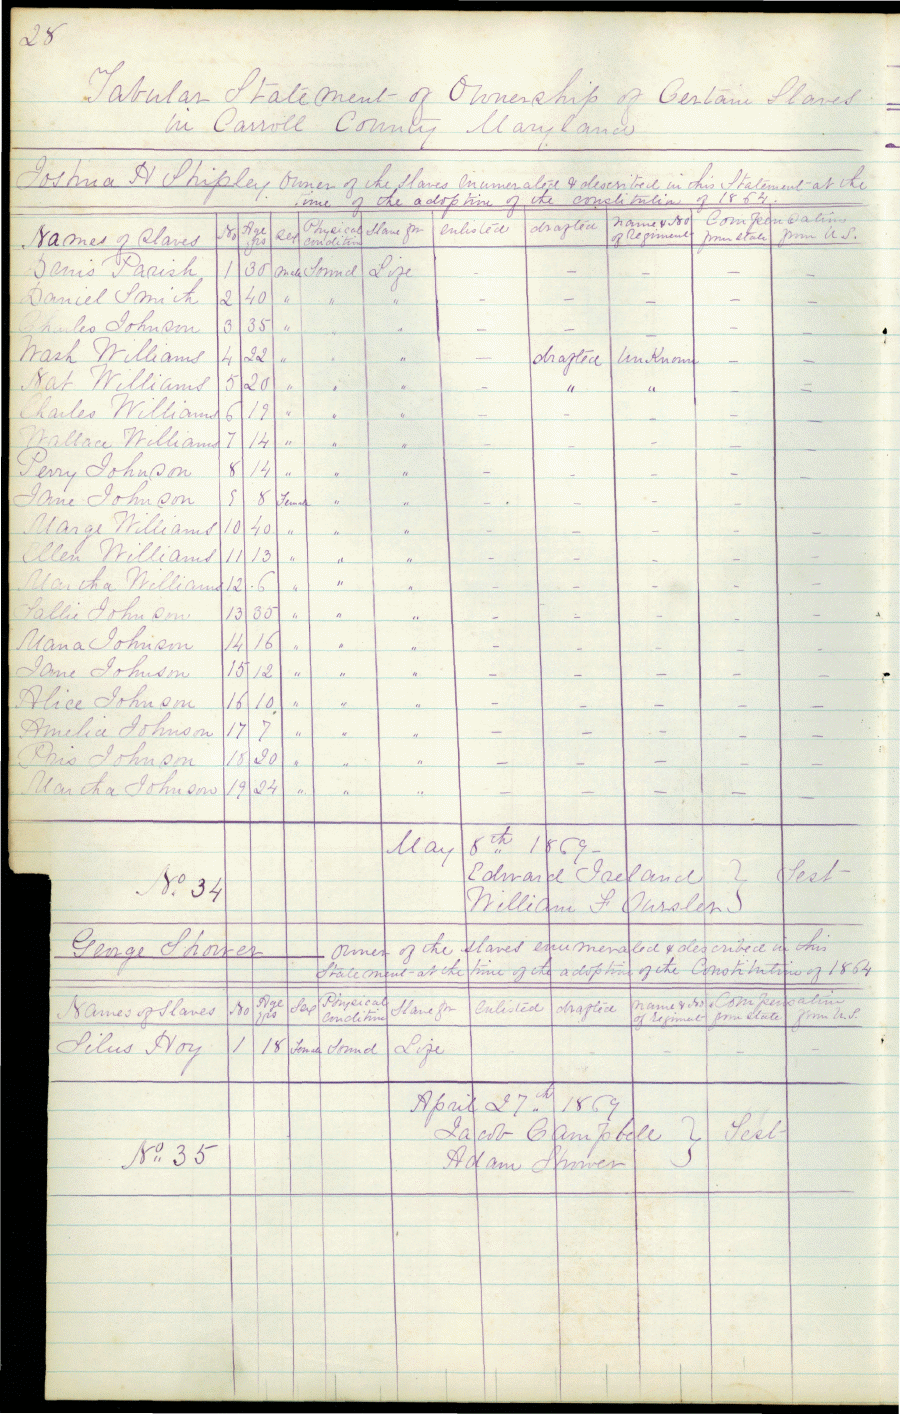 28
Tabular Statement of Ownership of Certain Slaves
in Carroll County Maryland
Joshua H Shipley Owner of the slaves enumerated & described in this Statement at the
time of the adoption of the constitution of 1864.
Names of Slaves No Age yrs Sex Physical condition Slave for enlisted drafted name & No of Regiment Compensation from state from U.S.
Denis Parish 1 30 male Sound Life - - - - -
Daniel Smith 2 40 " " " - - - - -
Charles Johnson 3 35 " " " - - - - -
Wash Williams 4 22 " " " - drafted UnKnown - -
Nat Williams 5 20 " " " - " " - -
Charles Williams 6 19 " " " - - - - -
Wallace Williams 7 14 " " " - - - - -
Perry Johnson 8 14 " " " - - - - -
Jane Johnson 9 8 Female " " - - - - -
Marge Williams 10 40 " " " - - - - -
Ellen Williams 11 13 " " " - - - - -
Martha Williams 12 6 " " " - - - - -
Sallie Johnson 13 35 " " " - - - - -
Johnson 14 16 " " " - - - - -
Jane Johnson 15 12 " " " - - - - -
Alice Johnson 16 10 " " " - - - - -
Amelia Johnson 17 7 " " " - - - - -
Johnson 18 20 " " " - - - - -
Martha Johnson 19 24 " " " - - - - -
May 8th 1869
No. 34 Edward Ireland } Test
William F Oursler
George Shower owner of the slaves enumerated & described in this
Statement at the time of the adoption of the Constitution of 1864
Names of Slaves No Age yrs Sex Physical condition Slave for Enlisted drafted name & No of Regiment Compensation from state from U.S.
Silus Hoy 1 18 Sound Life - - - - -
April 27th 1869
Jacob Campbell } Test
No. 35 Adam Shower